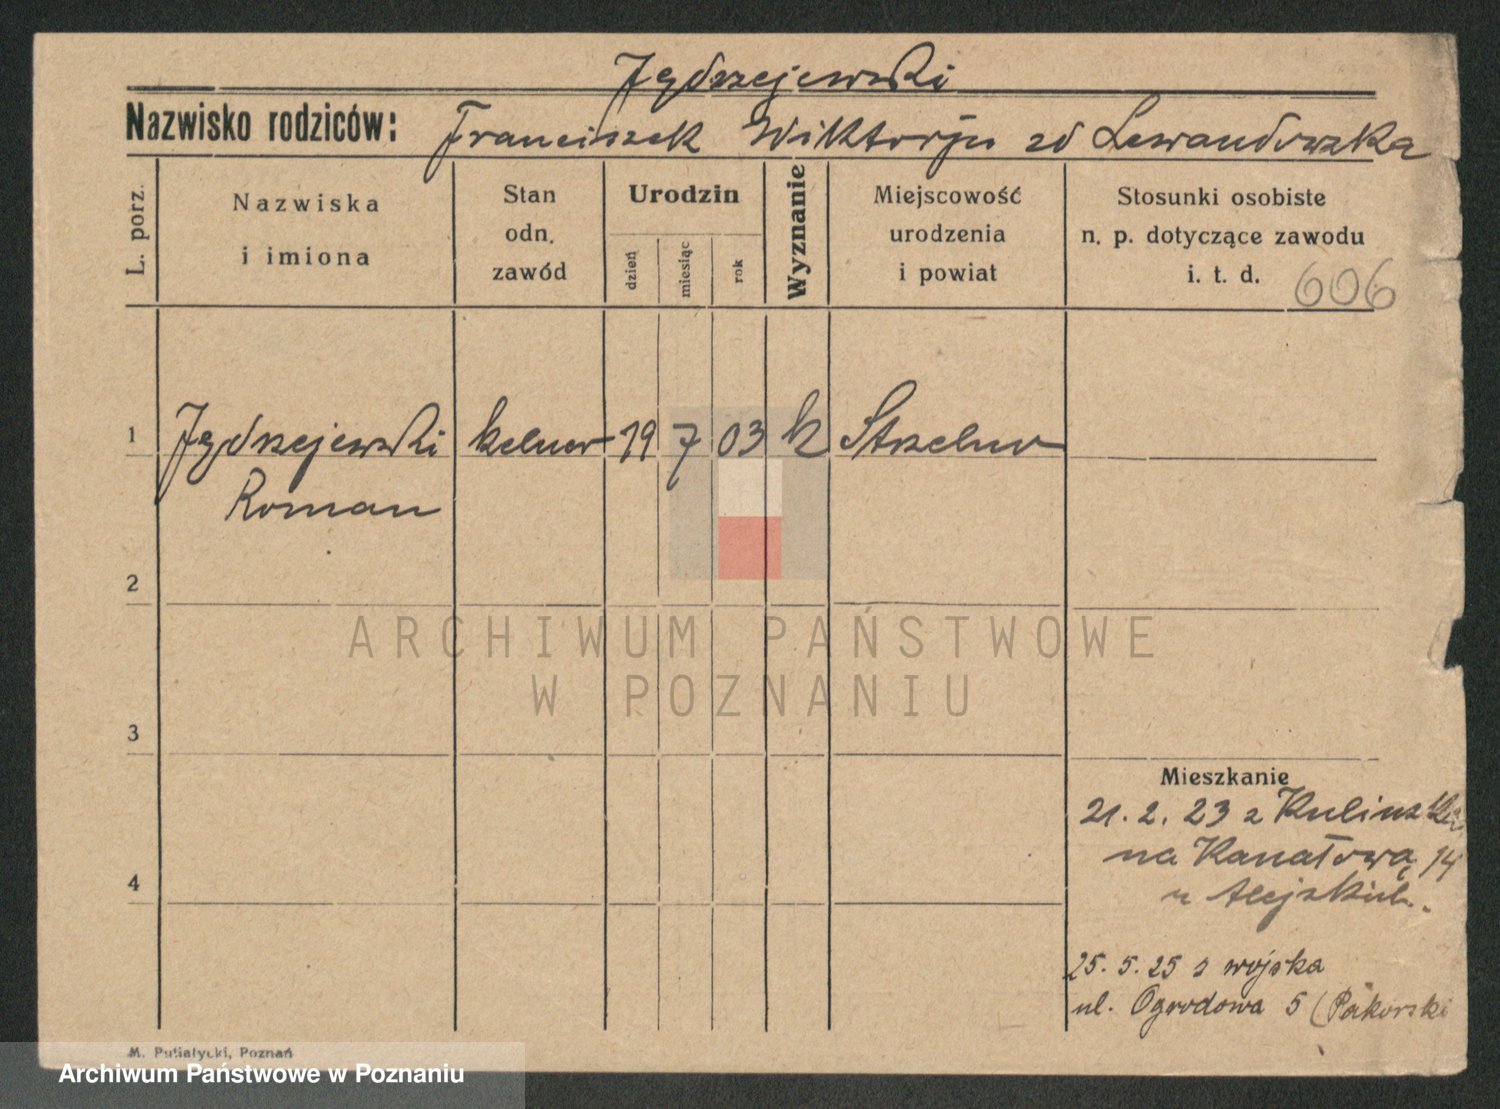 Jędrzejewski
Nazwisko rodziców: Franciszek Wiktorja zd Lewandowska
L. porz.
Nazwiska
i imiona
Stan
odn.
zawód
Urodzin
dzień
miesiąc
rok
Wyznanie
Miejscowość
urodzenia
i powiat
Stosunki osobiste
n. p. dotyczące zawodu
i. t. d. 606
1 Jędrzejewski kelner 19 7 03 k Strzelno
Roman
2
3
4
Mieszkanie
21. 2. 23 z
na Kanałową 14
u
25. 5. 25 z wojska
ul. Ogrodowa 5 (Pakorski
M. Putiatycki, Poznań
ARCHIWUM PAŃSTWOWE
W POZNANIU
Archiwum Państwowe w Poznaniu